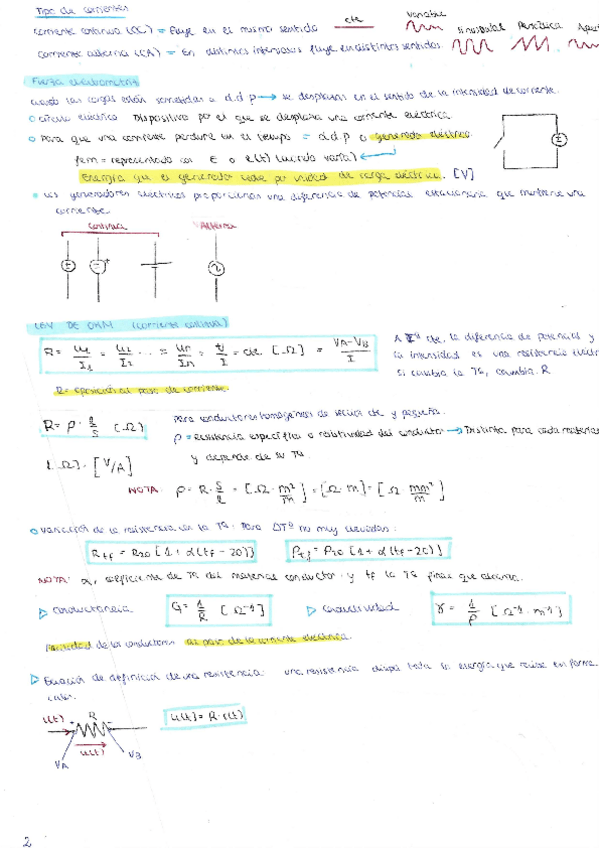 Tipo de corrientes
corriente continua (CC) = fluye en el mismo sentido cte variable
corriente alterna (CA) = En distintos intervalos fluye en distintos sentidos. Sinusoidal Periódica
Fuerza electromotriz
cuando las cargas están sometidas a d.d.p → se desplazan en el sentido de la intensidad de corriente.
circuito eléctrico Dispositivo por el que se desplaza una corriente eléctrica.
Para que una corriente perdure en el tiempo = d.d.p o generador eléctrico
fem = representado con E o e(t) (cuando varía)
Energía que el generador cede por unidad de carga eléctrica. [V]
Los generadores eléctricos proporcionan una diferencia de potencial estacionaria que mantiene una
corriente.
Continua Alterna
LEY DE OHM (corriente continua)
R = u1/I1 = u2/I2 ... = un/In = u/I = cte [Ω] = VA-VB/I
A Tª cte, la diferencia de potencial y
la intensidad es una resistencia
si cambia la Tª, cambia R
R = oposición al paso de corriente.
R = ρ · l/s [Ω]
Para conductores homogéneos de sección cte y pequeña.
ρ = Resistencia específica o resistividad del conductor → Distinta para cada material
y depende de su Tª
[Ω] = [V/A]
NOTA: ρ = R · s/l = [Ω · m²/m] = [Ω · m] = [Ω · mm²/m]
Variación de la resistencia con la Tª. Para ΔTª no muy elevadas:
Rtf = R20 [1 + α(tf - 20)] ρtf = ρ20 [1 + α(tf - 20)]
NOTA: α, coeficiente de Tª del material conductor y tf la Tª final que alcanza.
Conductancia G = 1/R [Ω⁻¹] Conductividad γ = 1/ρ [Ω⁻¹ · m⁻¹]
de los conductores al paso de la corriente eléctrica.
Ecuación de definición de una resistencia: una resistencia disipa toda la energía que recibe en forma
calor.
i(t) R
u(t) = R · i(t)
u(t)
VA VB
2